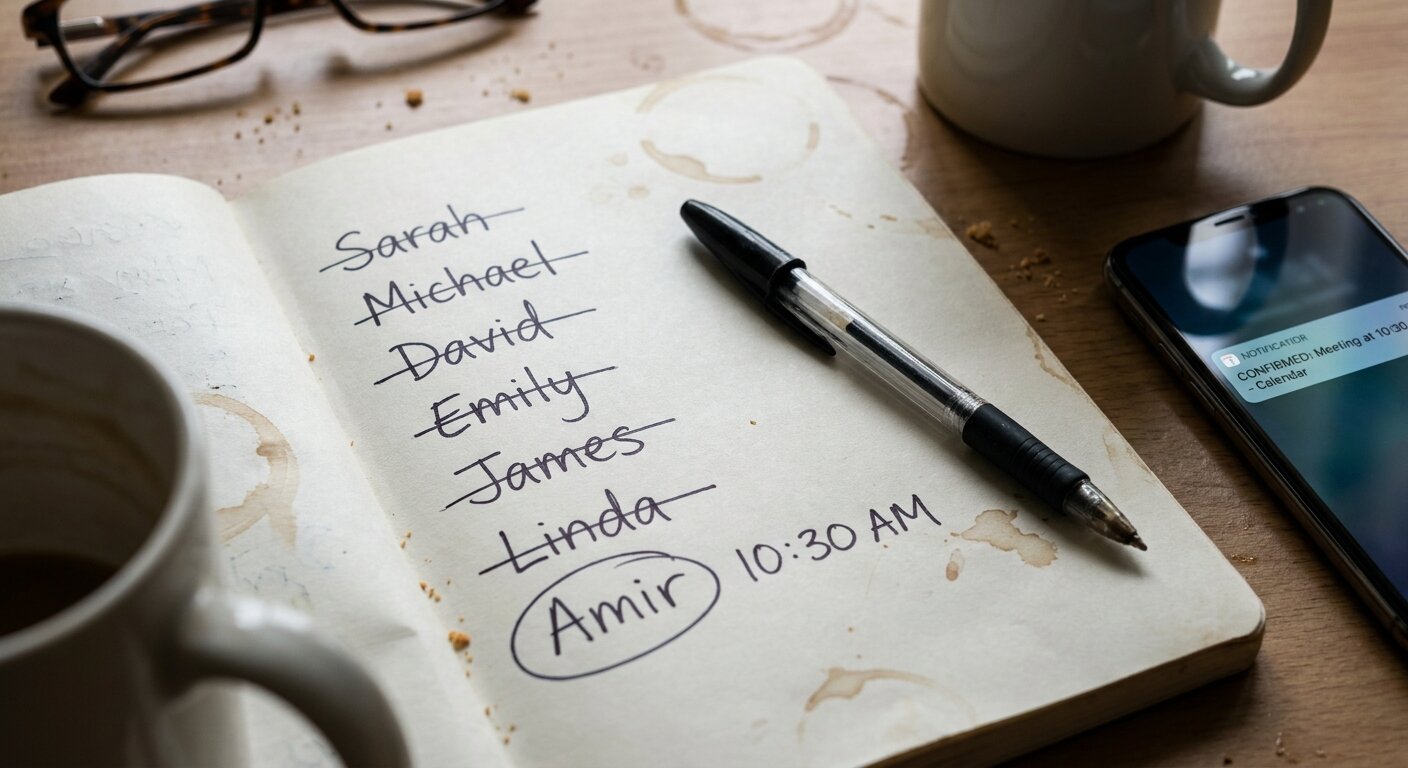 Sarah
Michael
David
Emily
James
Linda
Amir 10:30 AM
NOTIFICATIOR
CONFIRMED: Meeting at 10:30
- Calendar